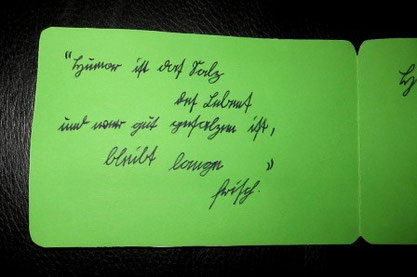 "Humor ist das Salz
des Lebens
und wer gut gesalzen ist,
bleibt lange "
frisch.